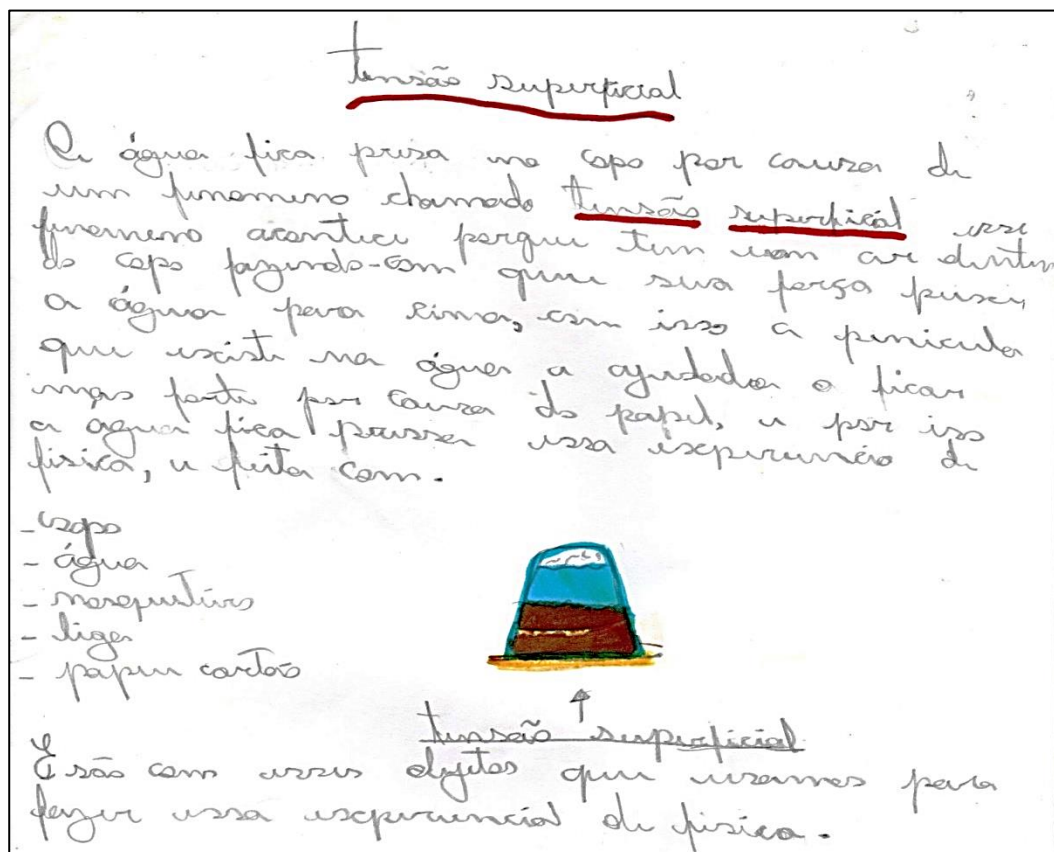 tensão superficial
A água fica presa no copo por causa de
um fenomeno chamado tensão superficial esse
fenomeno acontece porque tem um ar dentro
do copo fazendo-com que sua força puxe
a água para sima, com isso a penicula
que existe na água a ajudada a ficar
mas forte por causa do papel, e por iso
a água fica pressa essa experiencia de
fisica, e feita com.
- copo
- água
- mosquiteiro
- liga
- papeu cartão
tensão superficial
E são com esses objetos que usamos para
fazer essa experiencia de fisica.